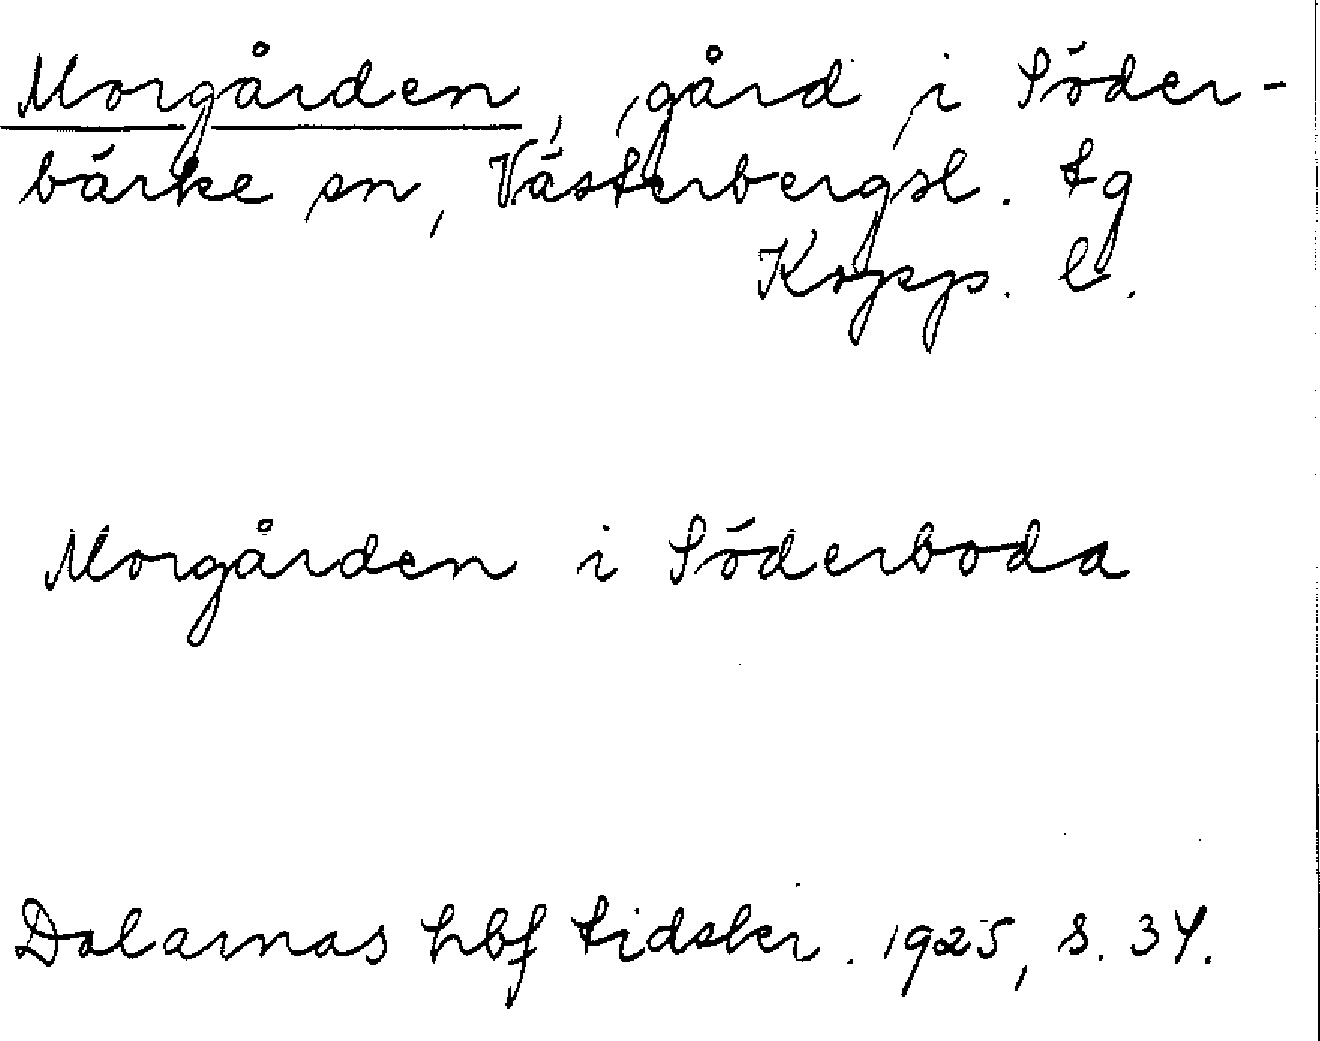 Morgården, gård i Söder-
bärke sn, Västerbergsl. tg
Kopp. l.
Morgården i Söderboda
Dalarnas hbf tidskr. 1925, s. 34.